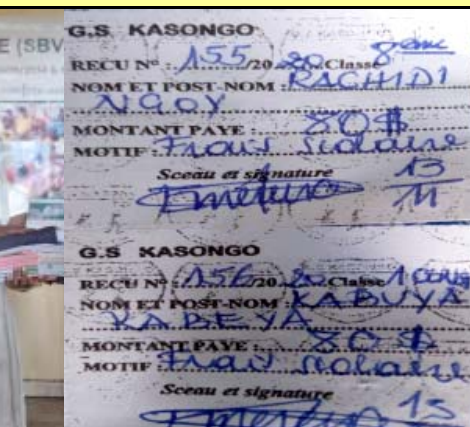 E (SBV
G.S KASONGO
RECU N° : 155/20 20 Classe 8eme
NOM ET POST-NOM : RACHIDI
NGOY
MONTANT PAYE : 80$
MOTIF : Frais Scolaire
Sceau et signature 13
11
G.S KASONGO
RECU N° : 156/20 20 Classe 1
NOM ET POST-NOM : KABUYA
KABEYA
MONTANT PAYE : 80$
MOTIF : Frais scolaire
Sceau et signature 13